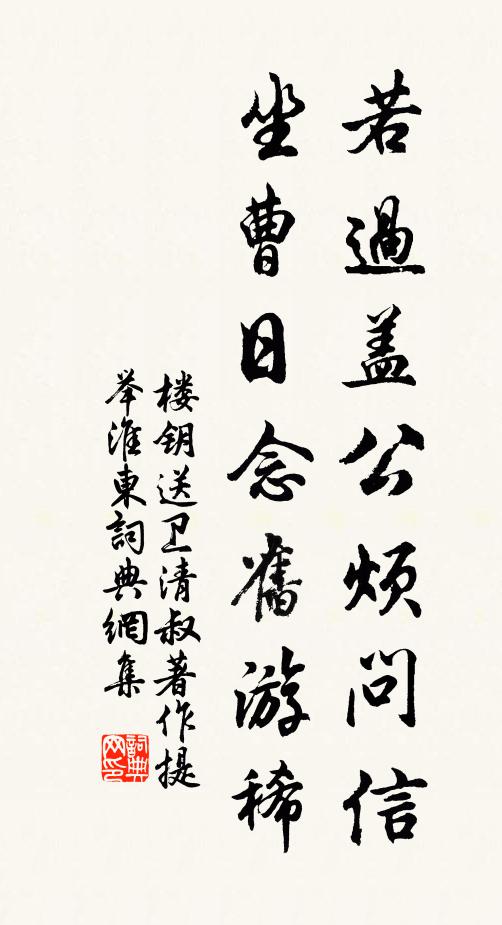 若過盖公煩問信
坐曹日念舊游稀
楼钥送卫清叔著作提
举淮東詞典網集
詞典网印